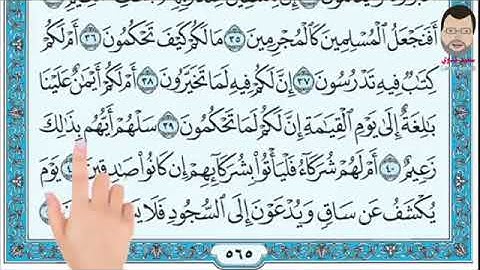 أَفَنَجْعَلُ ٱلْمُسْلِمِينَ كَٱلْمُجْرِمِينَ ٣٥ مَا لَكُمْ كَيْفَ تَحْكُمُونَ ٣٦ أَمْ لَكُمْ
كِتَٰبٌ فِيهِ تَدْرُسُونَ ٣٧ إِنَّ لَكُمْ فِيهِ لَمَا تَخَيَّرُونَ ٣٨ أَمْ لَكُمْ أَيْمَٰنٌ عَلَيْنَا
بَٰلِغَةٌ إِلَىٰ يَوْمِ ٱلْقِيَٰمَةِ إِنَّ لَكُمْ لَمَا تَحْكُمُونَ ٣٩ سَلْهُمْ أَيُّهُم بِذَٰلِكَ
زَعِيمٌ ٤٠ أَمْ لَهُمْ شُرَكَآءُ فَلْيَأْتُوا۟ بِشُرَكَآئِهِمْ إِن كَانُوا۟ صَٰدِقِينَ يَوْمَ
يُكْشَفُ عَن سَاقٍ وَيُدْعَوْنَ إِلَى ٱلسُّجُودِ فَلَا
٥٦٥